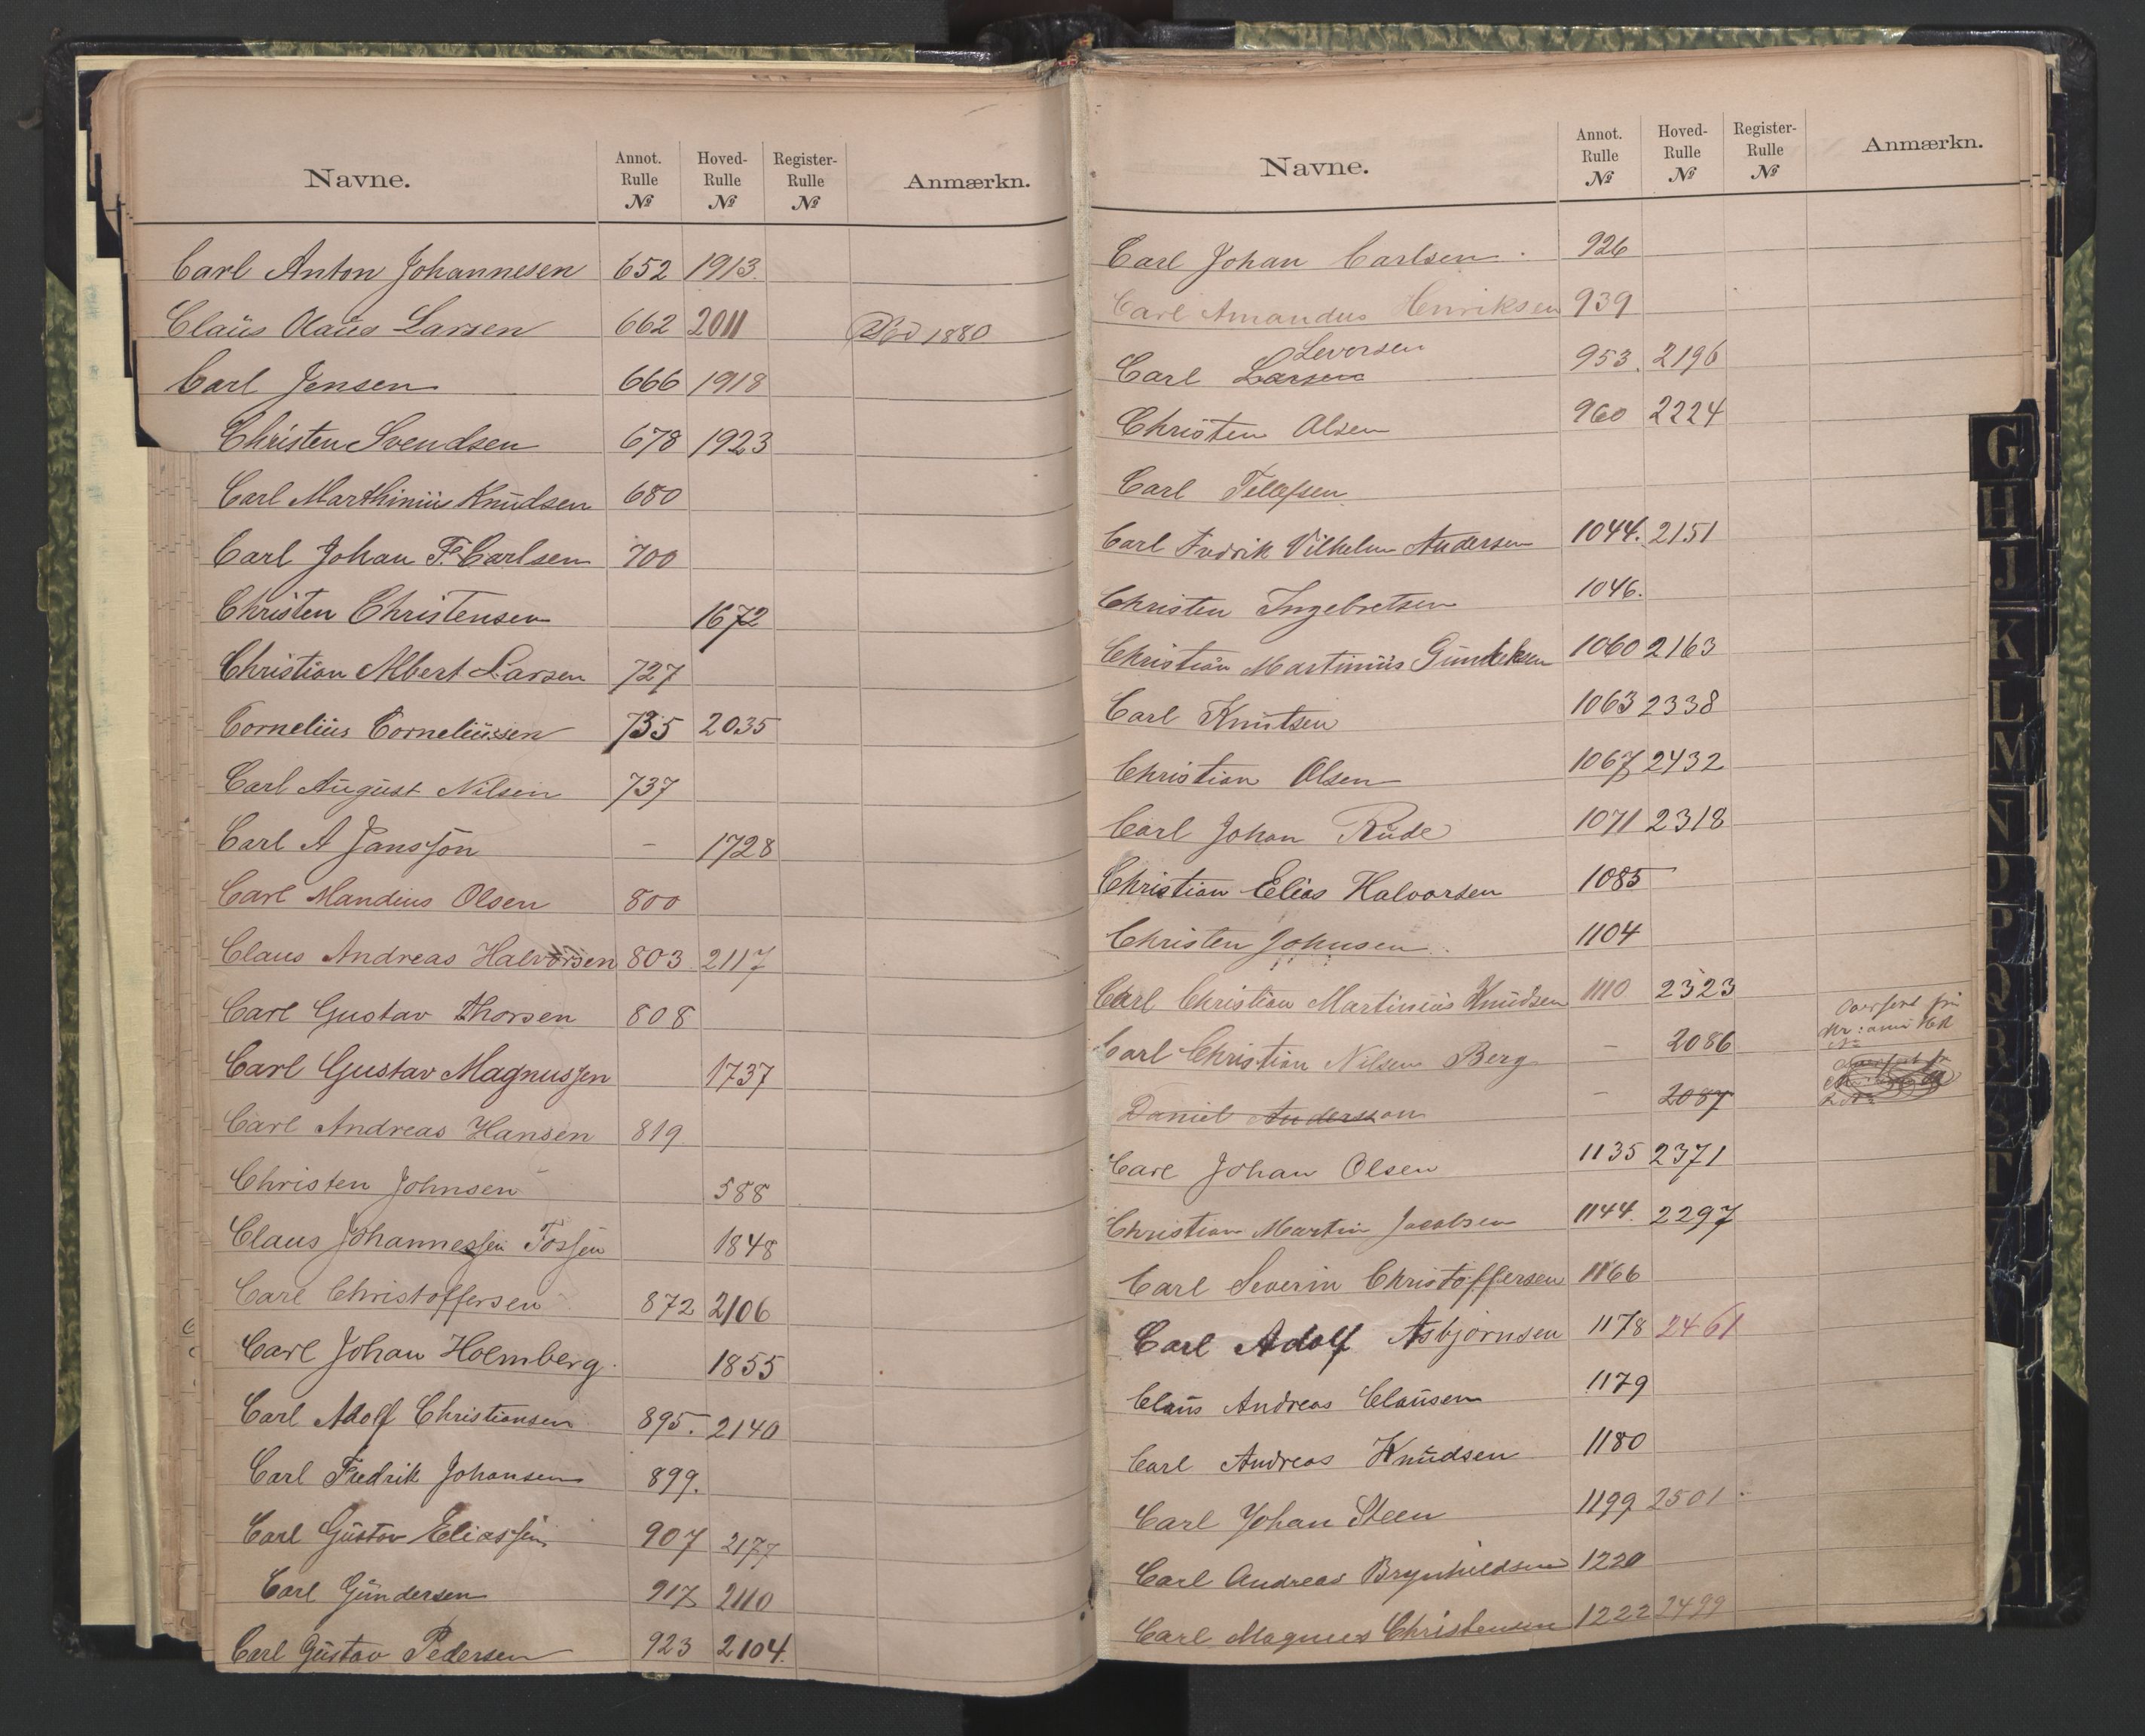 Navne.
Annot. Rulle № Hoved- Rulle № Register- Rulle № Anmærkn.
Carl Anton Johannesen 652 1913
Claus Olaus Larsen 662 2011 Död 1880
Carl Jensen 666 1918
Christen Svendsen 678 1923
Carl Marthinius Knudsen 680
Carl Johan F. Carlsen 700
Christen Christensen 1672
Christian Albert Larsen 727
Cornelius Corneliussen 735 2035
Carl August Nilsen 737
Carl A Jansson – 1728
Carl Mandius Olsen 800
Claus Andreas Halvorsen 803 2117
Carl Gustav Thorsen 808
Carl Gustav Magnussen 1737
Carl Andreas Hansen 819
Christen Johnsen 588
Claus Johannessen Fossen 1848
Carl Christoffersen 872 2106
Carl Johan Holmberg 1855
Carl Adolf Christiansen 895. 2140
Carl Fredrik Johansen 899.
Carl Gustav Eliassen 907 2177
Carl Gundersen 917 2110
Carl Gustav Pedersen 923 2104.
Navne.
Annot. Rulle № Hoved- Rulle № Register- Rulle № Anmærkn.
Carl Johan Carlsen 926
Carl Amandus Henriksen 939
Levorsen
Carl Larsen 953. 2196
Christen Olsen 960 2224
Carl Tellefsen
Carl Fredrik Vilhelm Andersen 1044. 2151
Christen Ingebretsen 1046.
Christian Martinius 1060 2163
Carl Knutsen 1063 2338
Christian Olsen 1067 2432
Carl Johan Rude 1071 2318
Christian Elias Halvorsen 1085
Christen Johnsen 1104
Carl Christian Martinius Knudsen 1110 2323
Carl Christian Nilsen Berg – 2086 Overført
Daniel Andersson – 2087
Carl Johan Olsen 1135 2371
Christian Martin Jacobsen 1144. 2297
Carl Severin Christoffersen 1166
Carl Adolf Asbjørnsen 1178 2461
Claus Andreas Clausen 1179
Carl Andreas Knudsen 1180
Carl Johan Steen 1199 2501
Carl Andreas Brynhildsen 1220
Carl Magnus Christensen 1222 2499
G
H
J
K
L
M
N
O
P
Q
R
S
T
V